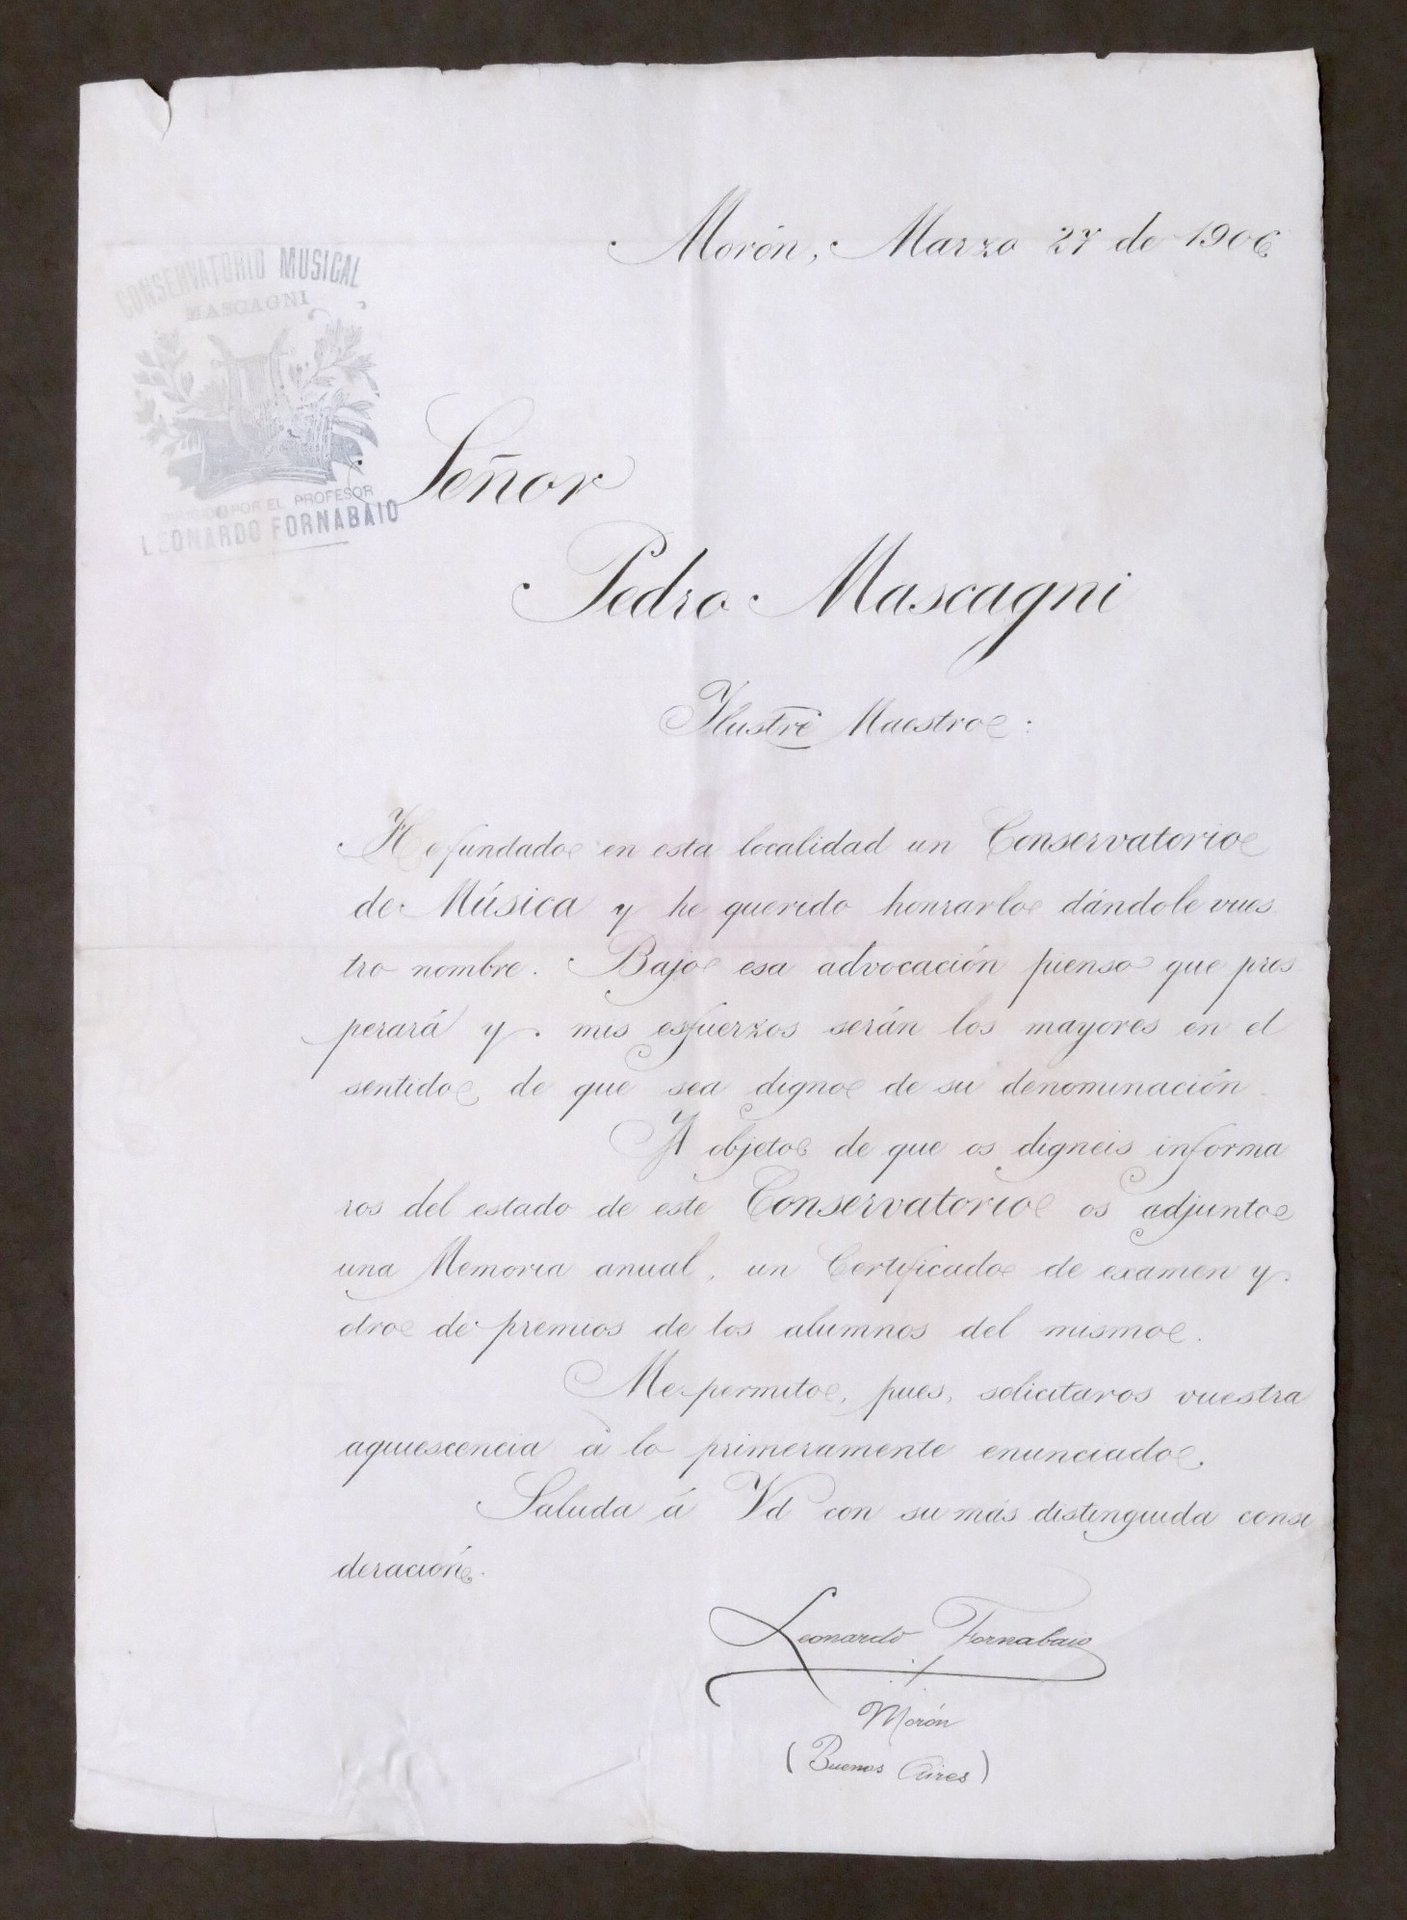 Morón, Marzo 27 de 1906
CONSERVATORIO MUSICAL
MASCAGNI
DIRIGIDO POR EL PROFESOR
LEONARDO FORNABAIO
Señor
Pedro Mascagni
Ilustre Maestro:
He fundado en esta localidad un Conservatorio
de Música y he querido honrarlo dándole vues
tro nombre. Bajo esa advocación pienso que pros
perará y mis esfuerzos serán los mayores en el
sentido de que sea digno de su denominación.
A objeto de que os digneis informa
ros del estado de este Conservatorio os adjunto
una Memoria anual, un Certificado de examen y
otro de premios de los alumnos del mismo.
Me permito, pues, solicitaros vuestra
aquiescencia á lo primeramente enunciado.
Saluda á Vd con su más distinguida consi
deración.
Leonardo Fornabaio
Morón
(Buenos Aires)